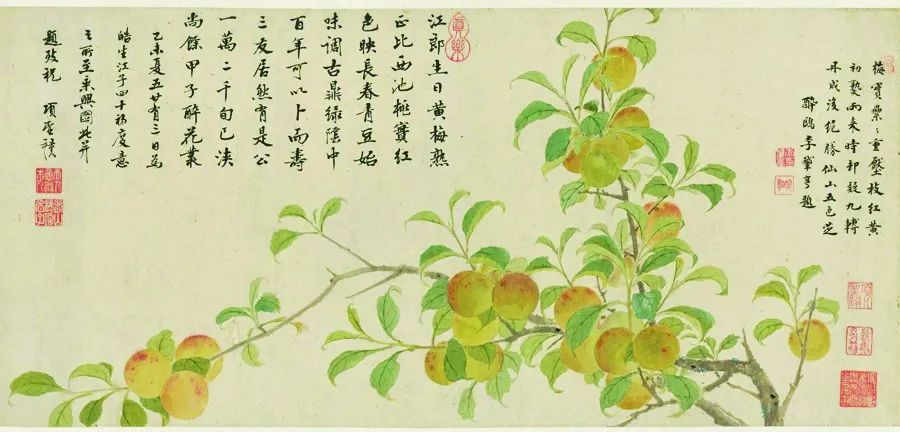 梅實纍〻重壓枝紅黃
初熟雨來時却疑九轉
丹成後絕勝仙山五色芝
醉鷗李肇亨題
真樂
江郎生日黃梅熟
正比西池桃實紅
色映長春青豆始
味調古鼎綠陰中
百年可以卜而壽
三友居然有是公
一萬二千旬已浹
尚餘甲子醉花叢
乙未夏五廿有三日為
皓生江子四十初度意
之所至乘興圖此并
題致祝 項聖謨